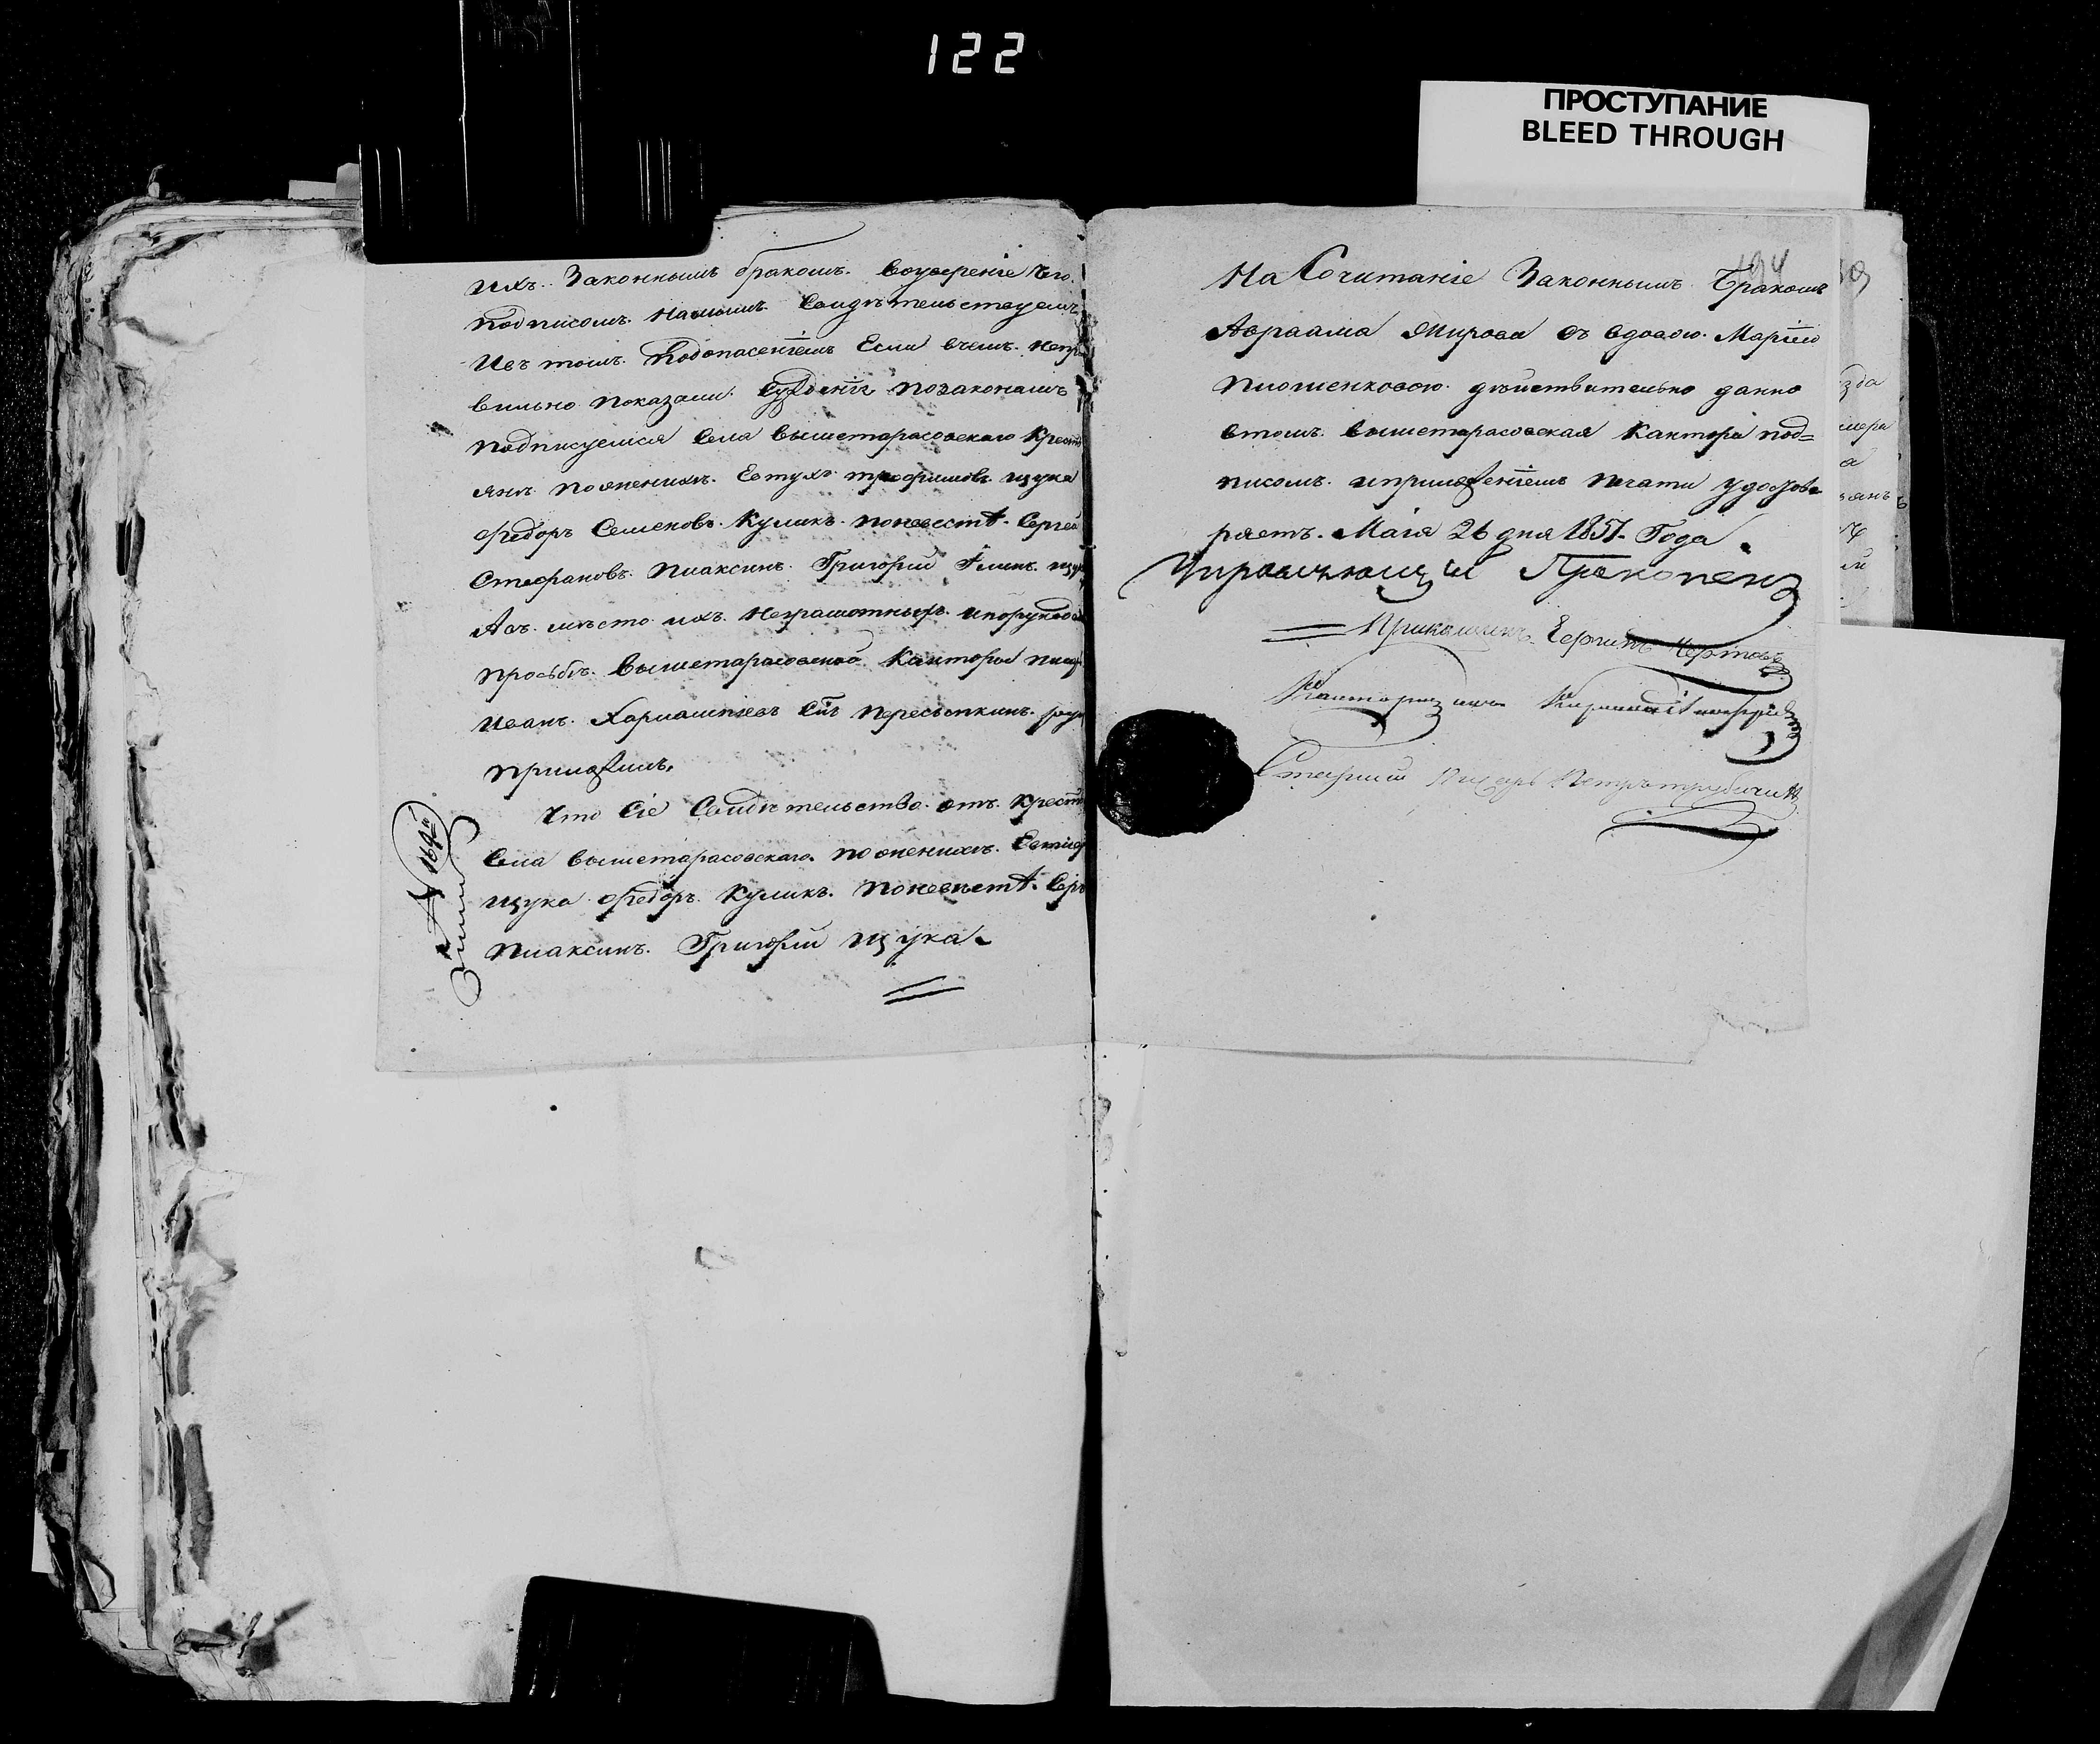 122
ПРОСТУПАНИЕ
BLEED THROUGH
ихъ. Законнымъ бракомъ. воуверение чего.
подписомъ. нашимъ. Свидетельствуемъ
Ивъ томъ. Подопасениемъ Если вчемъ. непра
вильно показали. Суждению позаконамъ
подписуемся Села вышетарасовскаго Крестъ
янъ поженихъ. Евтухъ трофимовъ щука
Федоръ Семеновъ. Куликъ. поневестѣ. Сергей
Стефановъ. Плаксинъ. Григорий Ѳлинъ. щук
Авъ место ихъ. Неграмотныхъ. ипорукода
прозьбѣ. вышетарасовской Канторы писар
Иванъ. Харлампиевъ Снъ Пересыпкинъ. руку
приложилъ.
Что Сіе Свидѣтельство. отъ. Крестъ
Села вышетарасовскаго. поженихъ. Евтиф
щука Федоръ. Куликъ. Поневестѣ. Сер
Плаксинъ. Григорій щука.
194
На Сочитаніе Законнымъ Бракомъ
Авраама Жирова съ вдовою. Маріею
Плошенковою. действительно данно
втомъ. вышетарасовская Кантора под=
писомъ. иприложениемъ печати удостове
ряетъ. Маія 26 дня 1851. Года.
Управляющій Прокопенко
Старшій Писарь Петръ